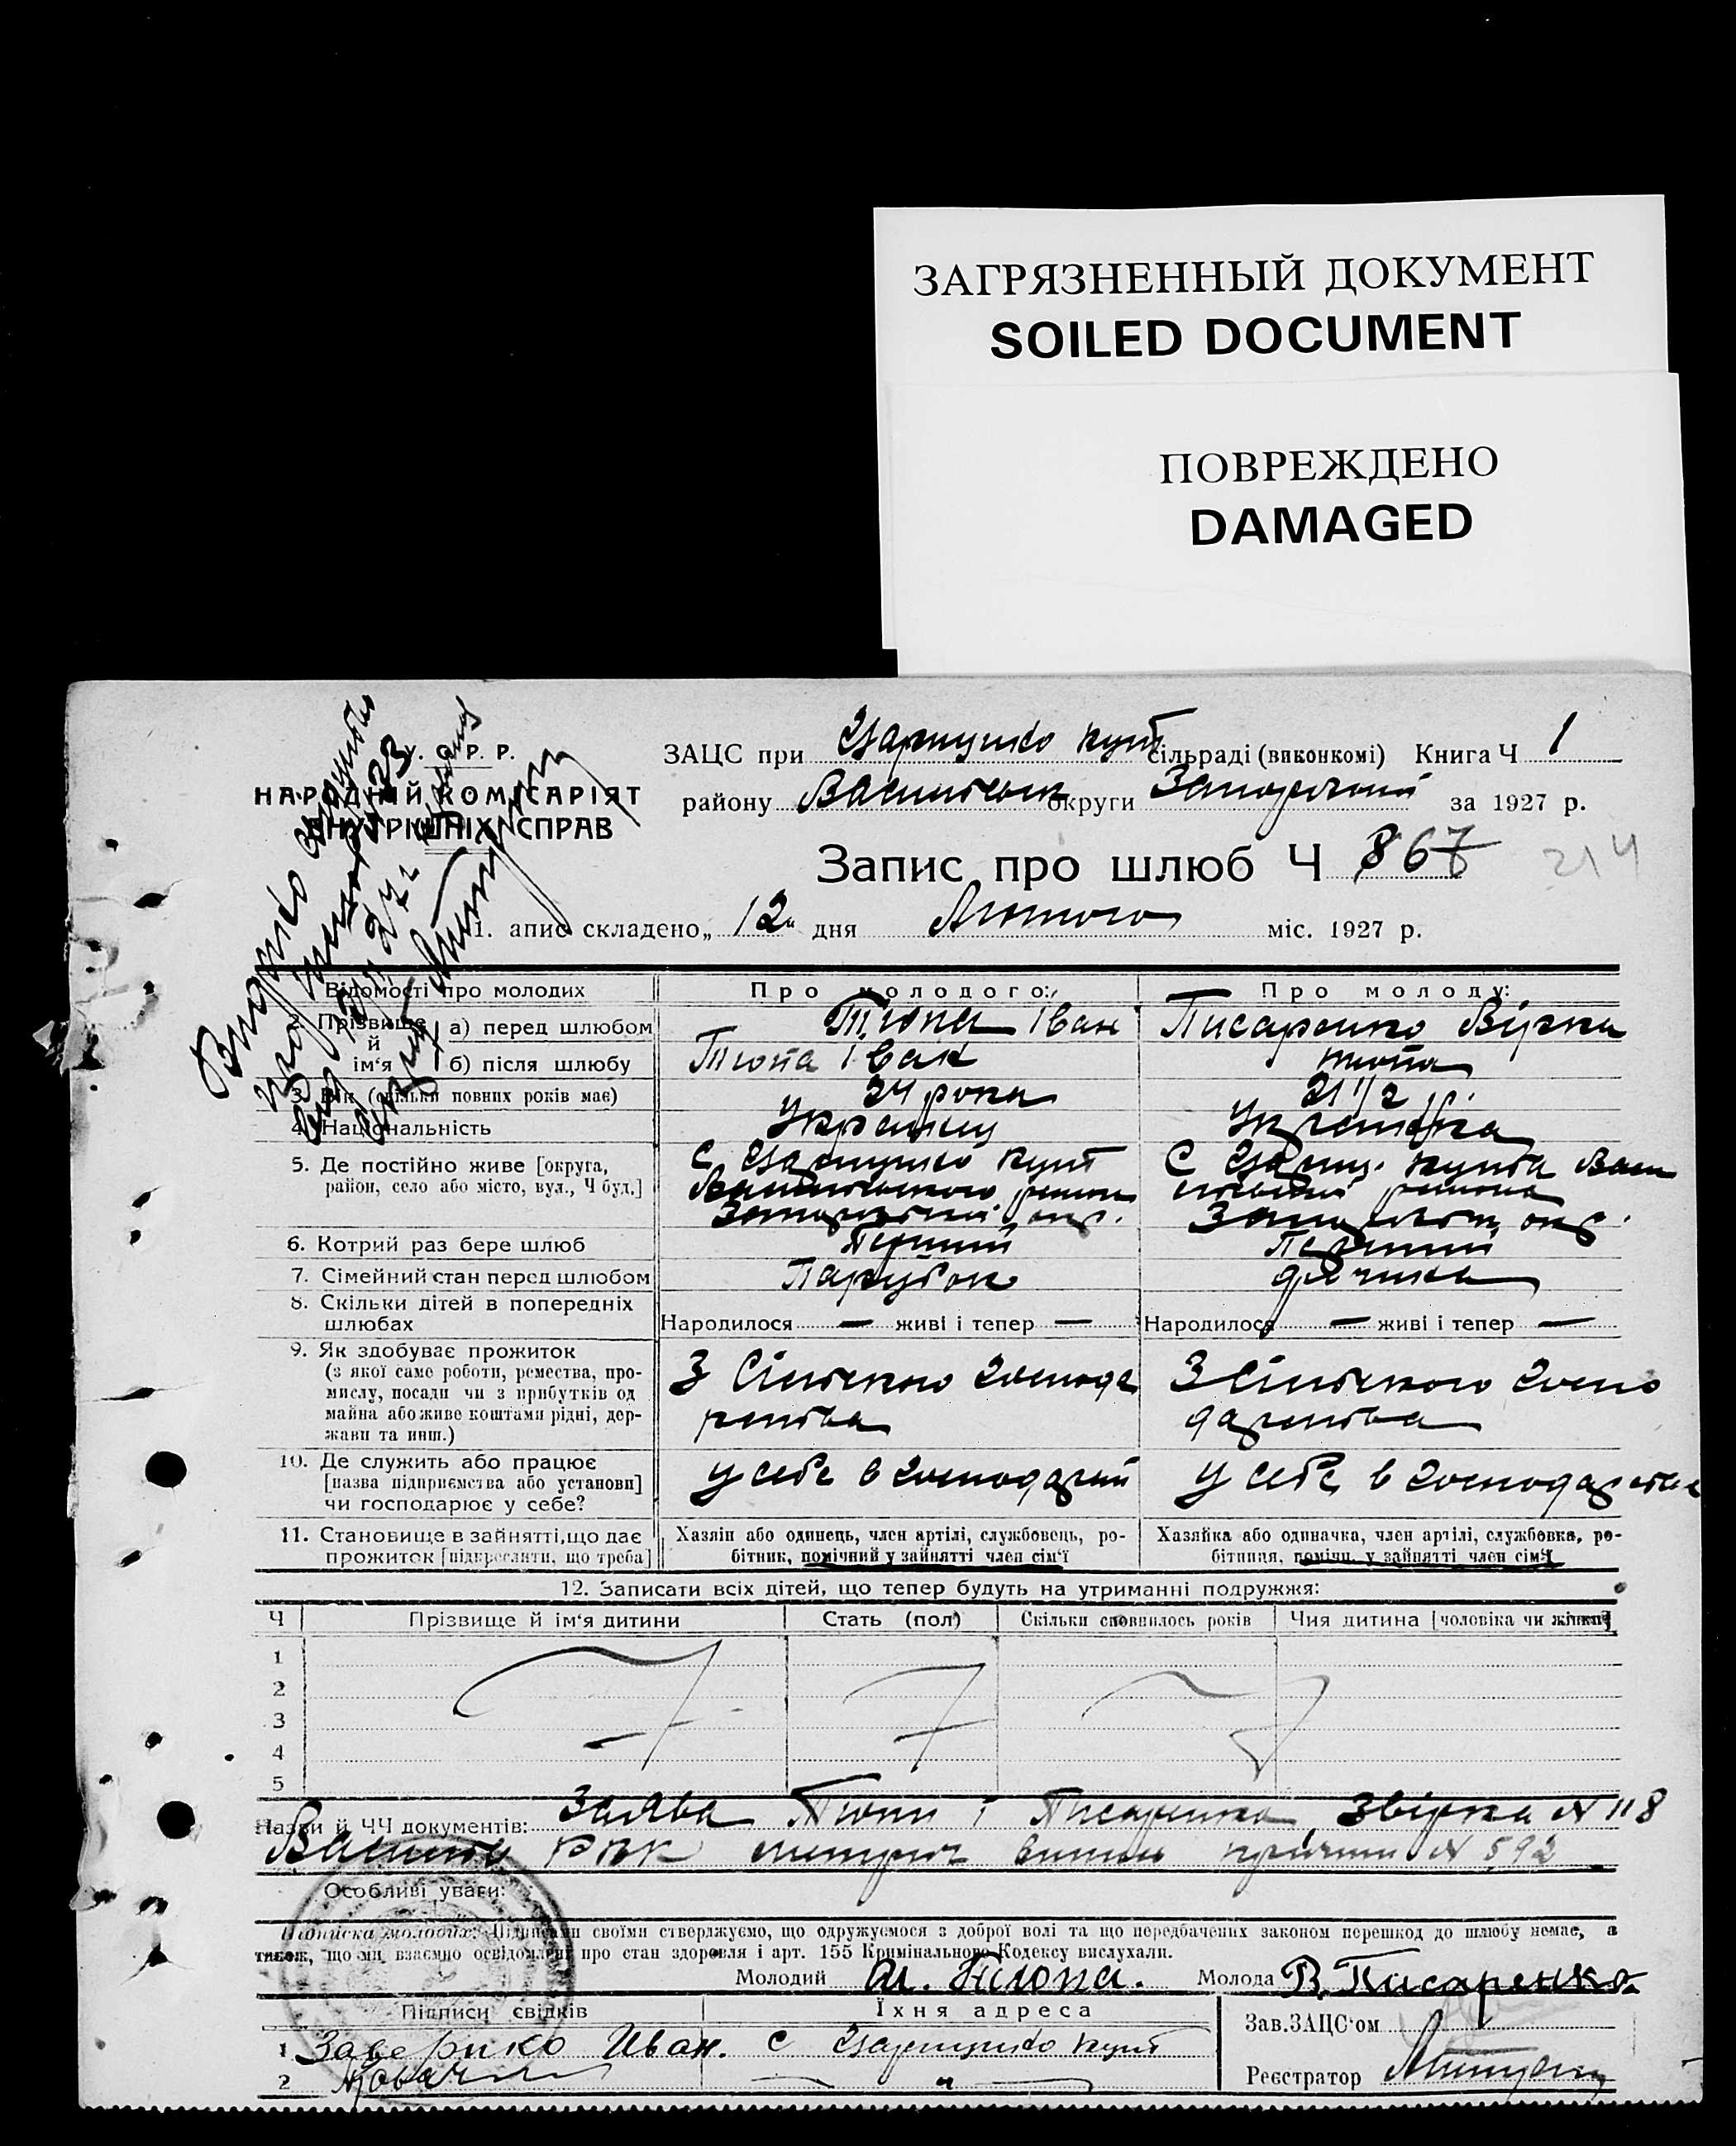 ЗАГРЯЗНЕННЫЙ ДОКУМЕНТ
SOILED DOCUMENT
ПОВРЕЖДЕНО
DAMAGED
У. С. Р. Р.
НАРОДНІЙ КОМІСАРІЯТ
ВНУТРІШНІХ СПРАВ
ЗАЦС при кут сільраді (виконкомі) Книга Ч 1
району округи за 1927 р.
Запис про шлюб Ч 867
214
1. апис складено „12“ дня Лютого міс. 1927 р.
Відомості про молодих Про молодого: Про молоду:
2. Прізвище й ім‘я а) перед шлюбом Тюпа Іван Писаренко Вірка
б) після шлюбу Тюпа Іван Тюпа
3. Вік (скільки повних років має) 24 роки 21 1/2 р.
4. Національність Українець Українка
5. Де постійно живе [округа, район, село або місто, вул., Ч буд.]
с. кут С кута
Василівського району району
окр. окр.
6. Котрий раз бере шлюб Перший Перший
7. Сімейний стан перед шлюбом Парубок дівчина
8. Скільки дітей в попередніх шлюбах Народилося — живі і тепер — Народилося — живі і тепер —
9. Як здобуває прожиток
(з якої саме роботи, ремества, промислу, посади чи з прибутків од майна або живе коштами рідні, держави та инш.)
З Сільського господа З Сільського госпо
рства дарства
10. Де служить або працює [назва підприємства або установи] чи господарює у себе?
у себе в у себе в господарстві
11. Становище в зайнятті, що дає прожиток [підкреслити, що треба]
Хазяїн або одинець, член артілі, службовець, робітник, помічний у зайнятті член сім‘ї
Хазяйка або одиначка, член артілі, службовка, робітниця, помічн. у зайнятті член сім‘ї
12. Записати всіх дітей, що тепер будуть на утриманні подружжя:
Ч Прізвище й ім‘я дитини Стать (пол) Скільки сповнилось років Чия дитина [чоловіка чи жінки]
1
2
3
4
5
Назви й ЧЧ документів: Заява Тюпи і Писаренко, Звірка № 118
РВК № 592
Особливі уваги:
Підписка молодих: Підписами своїми стверджуємо, що одружуємося з доброї волі та що передбачених законом перешкод до шлюбу немає, а
також, що ми взаємно освідомлені про стан здоровля і арт. 155 Кримінального Кодексу вислухали.
Молодий Тюпа. Молода В. Писаренко
Підписи свідків Їхня адреса Зав. ЗАЦС‘ом
1 Иван. с кут
2 — „ — Реєстратор